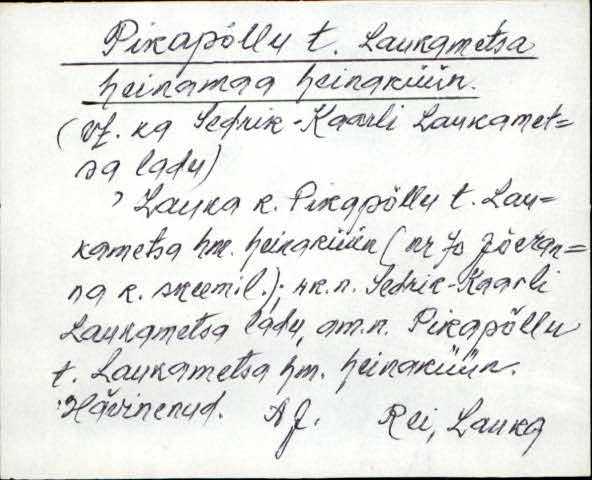 Pikapõllu t. Laukametsa
heinamaa heinaküün.
(vt. ka Sedrik-Kaarli Laukamet=
sa ladu)
, Lauka k. Pikapõllu t. Lau=
kametsa hm. heinaküün (nr 70 Jõeran=
na k. skeemil.); rk.n. Sedrik-Kaarli
Laukametsa ladu, am.n. Pikapõllu
t. Laukametsa hm. heinaküün.
Hävinenud. AJ. Rei, Lauka